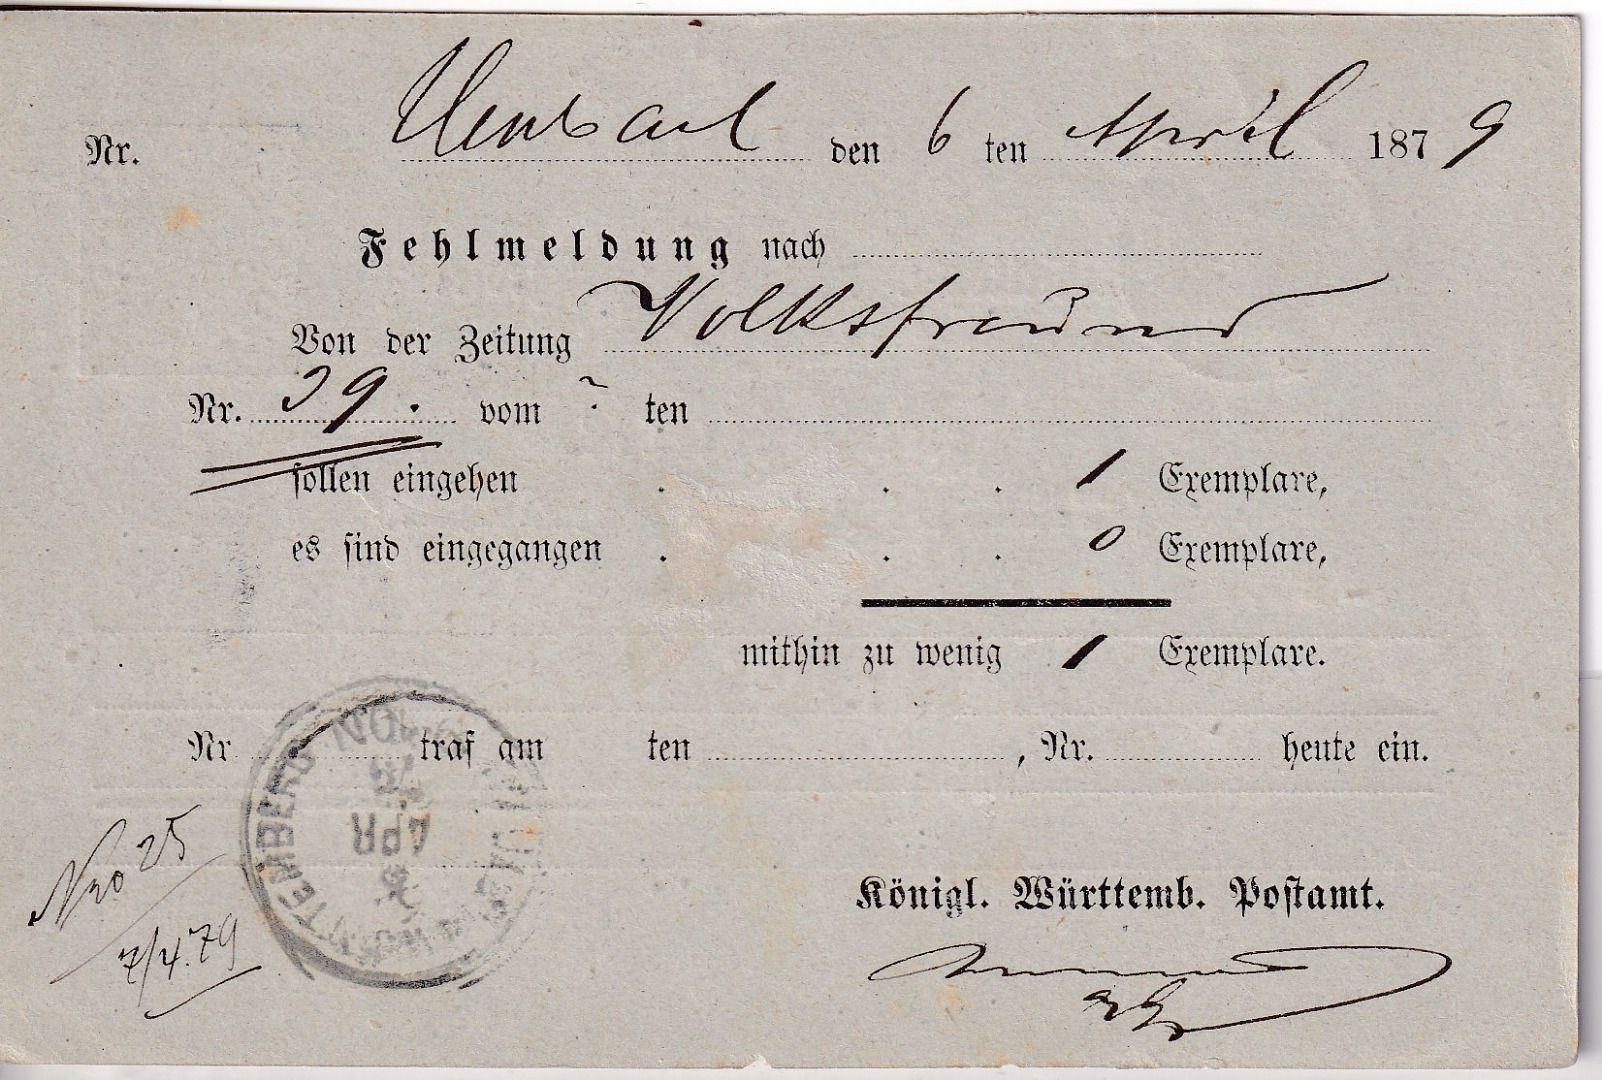 Nr. den 6 ten April 1879
Fehlmeldung nach
Von der Zeitung Volksfreund
Nr. 39. vom ? ten
sollen eingehen . . . 1 Exemplare,
es sind eingegangen . . . 0 Exemplare,
mithin zu wenig 1 Exemplare.
Nr traf am ten , Nr. heute ein.
APR
Nro 25
7/4.79
Königl. Württemb. Postamt.